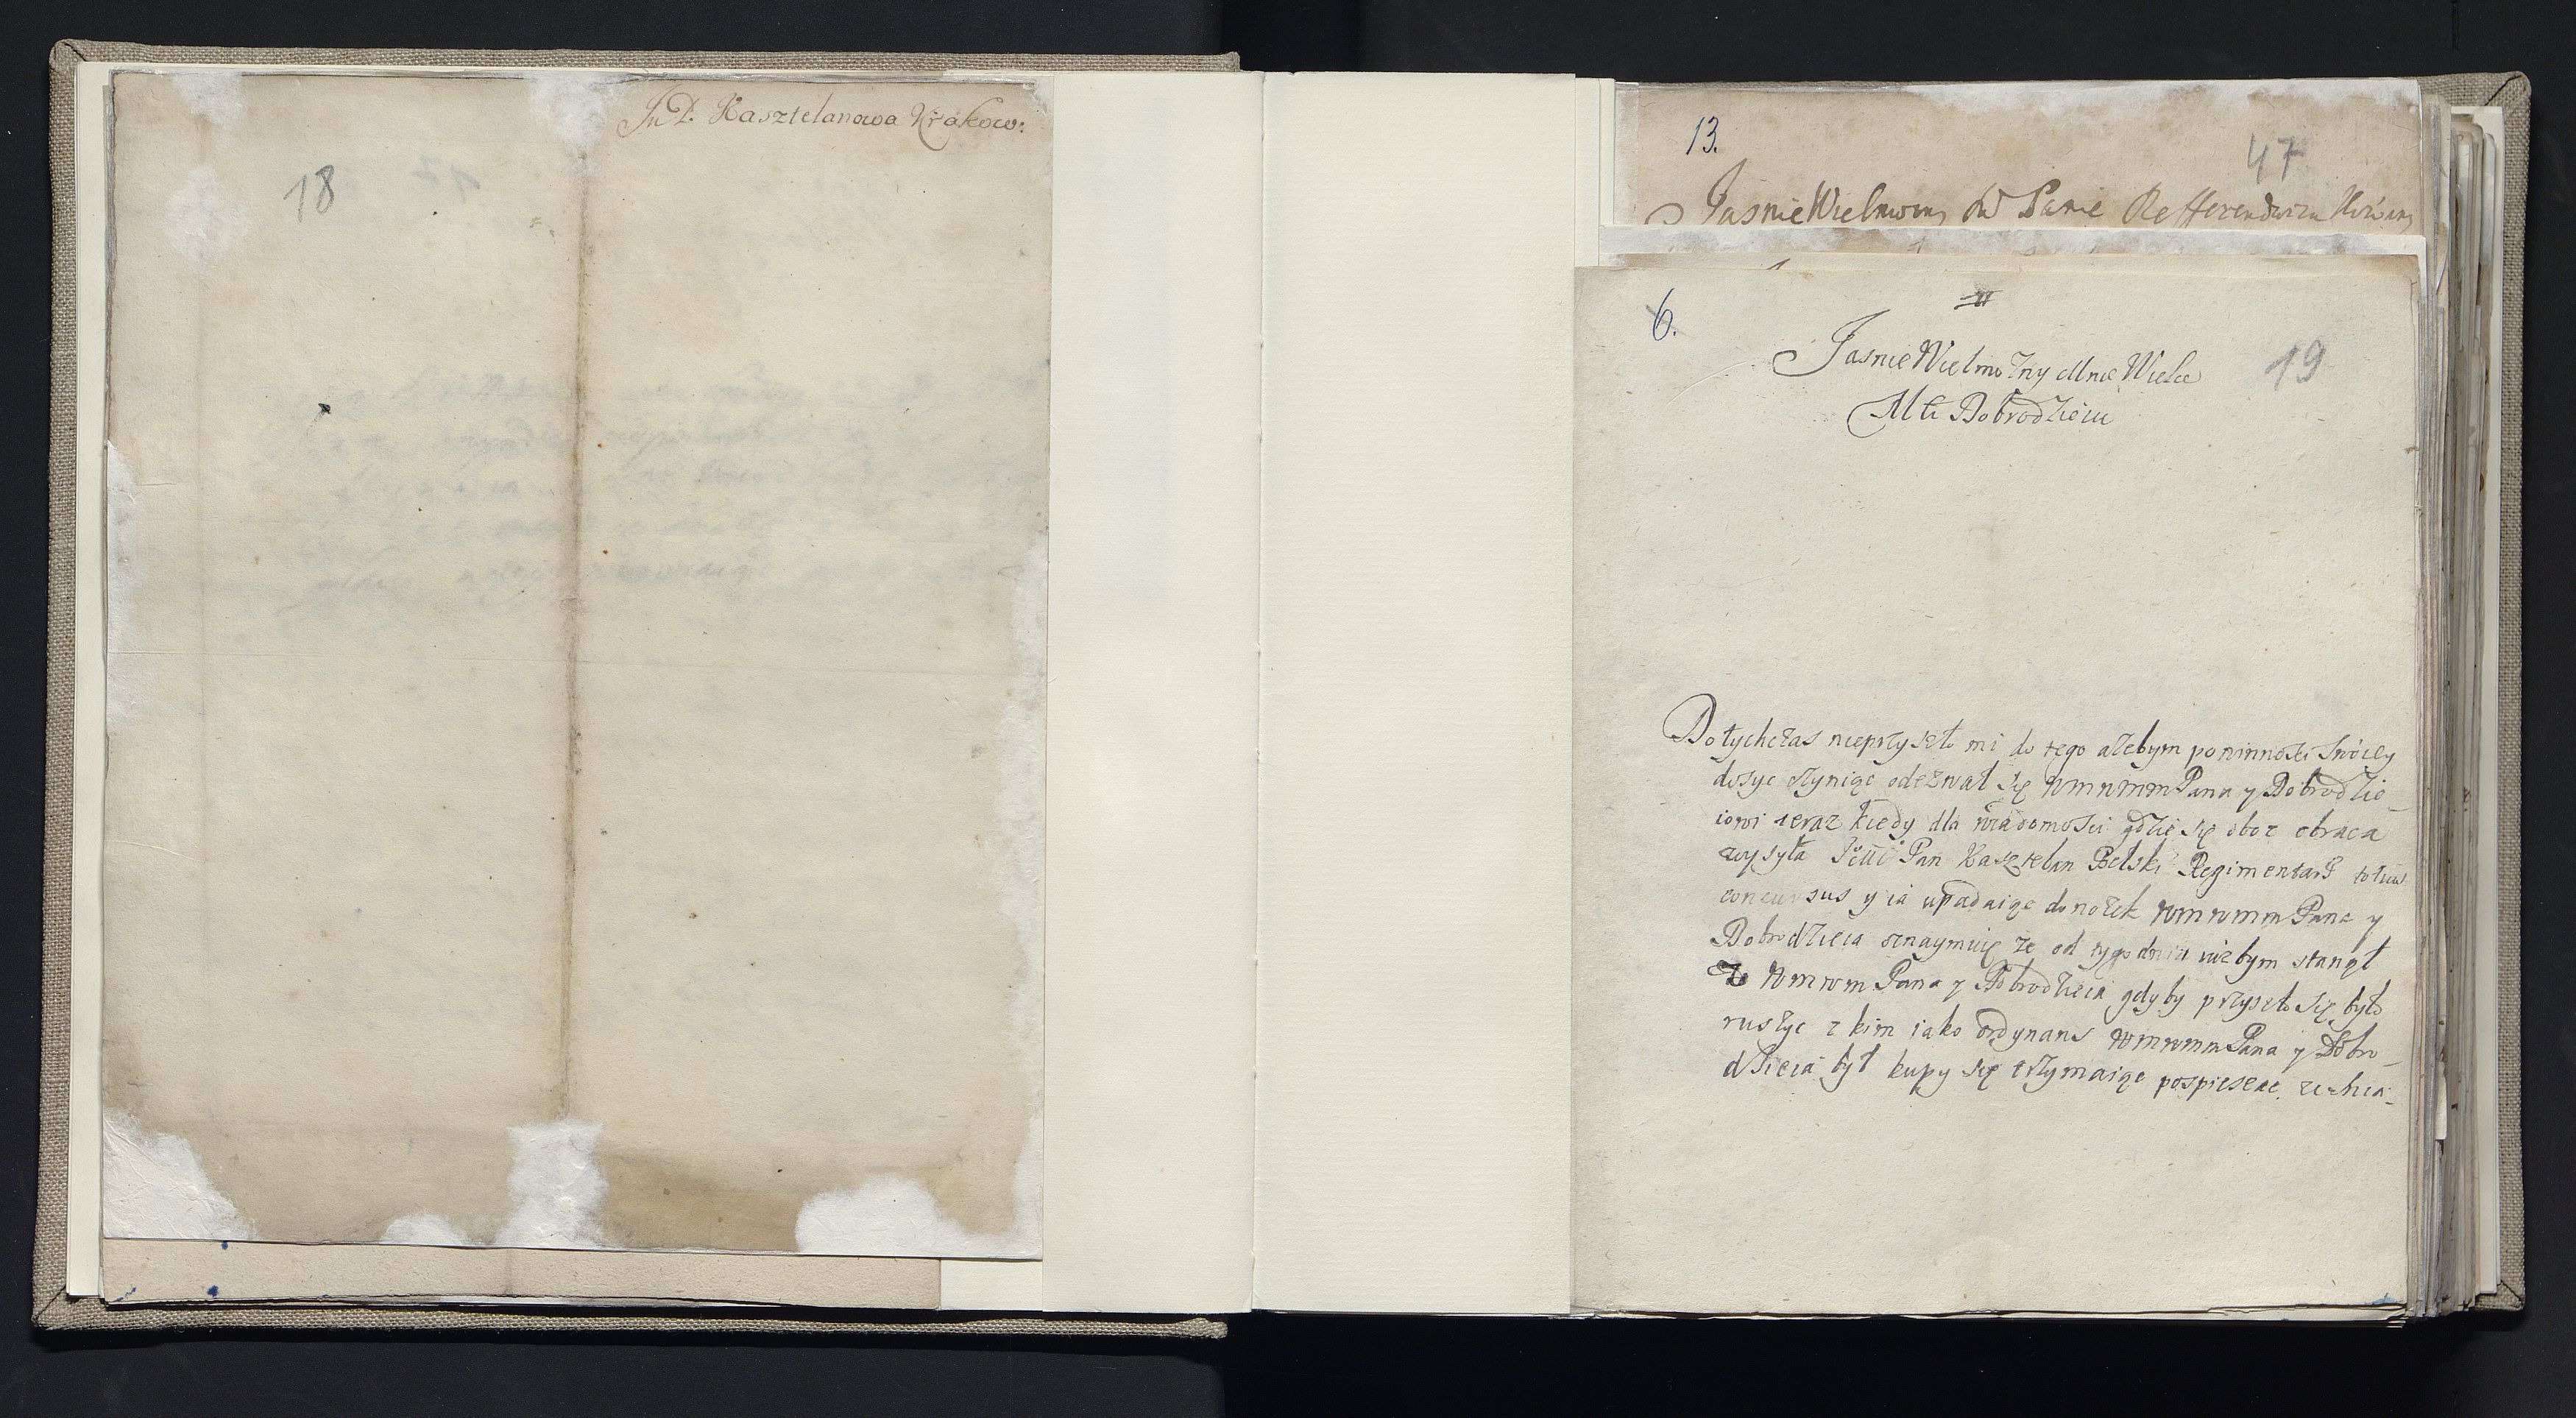 JW P. Kasztelanowa Krakow:
18
13.
47
Jasnie Wielmozny Panie Refferendarzu
6.
19
Jasnie Wielmożny Mnie Wielce
Mći Dobrodzieiu
Dotychczas nieprzyszło mi do tego ażebym powinnosci swoiey
dosyc czyniąc odezwał się WMWMMPanu y Dobrodzie-
iowi teraz kiedy dla wiadomosci gdzie się oboz obraca
wysyła Pan Kasztelan Bełski Regimentarz totius
concursus y ia upadaiąc do nożek WMWMMPana y
Dobrodzieia oznaymuię że od tygodnia iużbym stanął
WMWMPana y Dobrodzieia gdyby przyszło się było
ruszyc z kim iako ordynans WMWMMPana y Dobro-
dzieia był kupy się trzymaiąc pospieszac